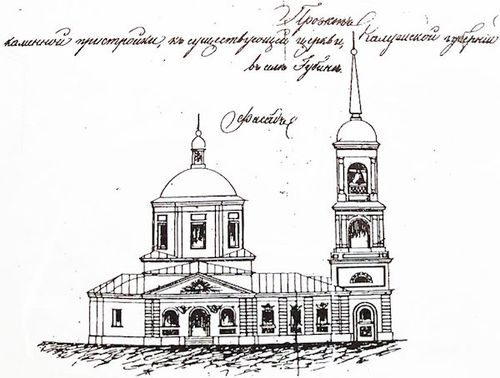 Проектъ
каменной пристройки, къ существующей церкви, Калужской губерніи
въ селѣ Губинѣ.
Фасадъ